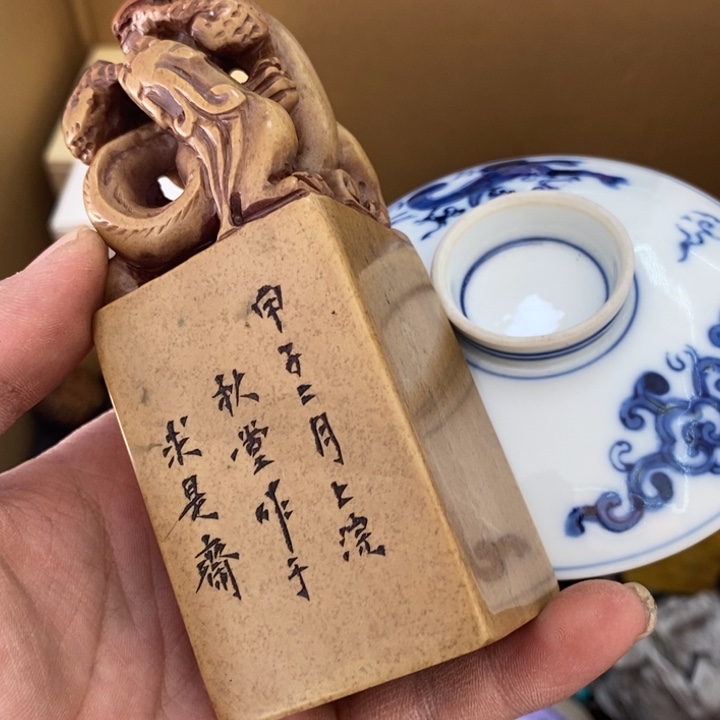 甲子二月上浣
秋堂作于
求是齋